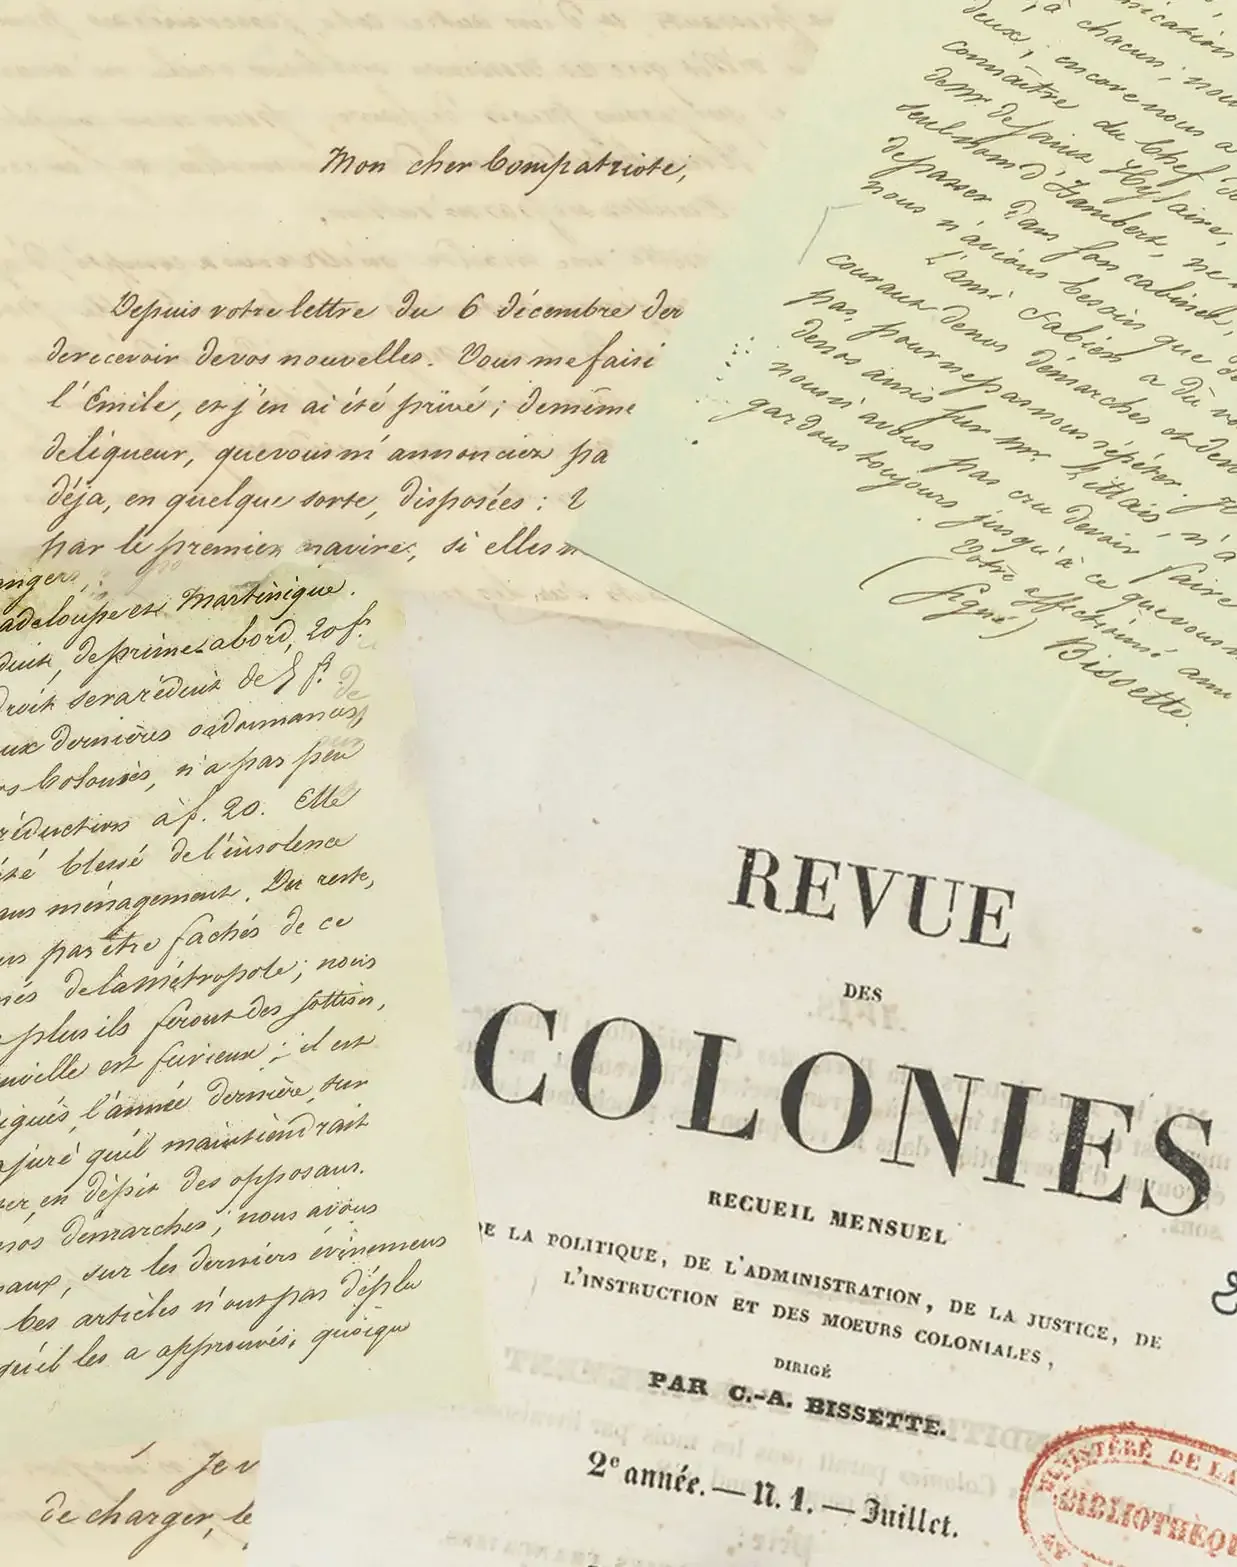 Mon cher Compatriote,
Depuis votre lettre du 6 décembre der
de recevoir de vos nouvelles. Vous me faisi
l'Emile, et j'en ai été privé ; de même
de liqueur, que vous m'annonciez pa
déja, en quelque sorte, disposées :
par le premier navire, si elles n
deux, encore nous a
connaître du Chef de
seul nom d'Isambert, ne
de passer dans son cabinet,
nous n'avions besoin que de
L'ami Fabien a dû vo
courant de nos démarches et de
pas, pour ne pas nous répéter.
de nos amis sur Mr.
nous n'avons pas cru devoir faire
gardons toujours jusqu'à ce que vous
Votre affectionné ami
(Signé) Bissette.
adeloupe et Martinique.
duit, de prime abord, 20 f.
droit sera réduit de 5 f.
ux dernières ordonnances,
rs Colonies, n'a pas peu
réduction à f. 20. Elle
été blessé de l'insolence
ans ménagement. Du reste,
us pas être fachés de ce
de la métropole ; nous
plus ils feront des sottises,
est furieux ; il est
l'année dernière, sur
juré qu'il maintiendrait
er, en dépit des opposans.
nos démarches ; nous avons
aux, sur les derniers évènemens
Ces articles n'ont pas déplu
qu'il les a approuvés, quoiqu
Je v
de charger, le
REVUE
DES
COLONIES
RECUEIL MENSUEL
DE LA POLITIQUE, DE L'ADMINISTRATION, DE LA JUSTICE, DE
L'INSTRUCTION ET DES MOEURS COLONIALES,
DIRIGÉ
PAR C.-A. BISSETTE.
2e année. — N. 1. — Juillet.
MINISTÈRE DE LA
BIBLIOTHÈQU